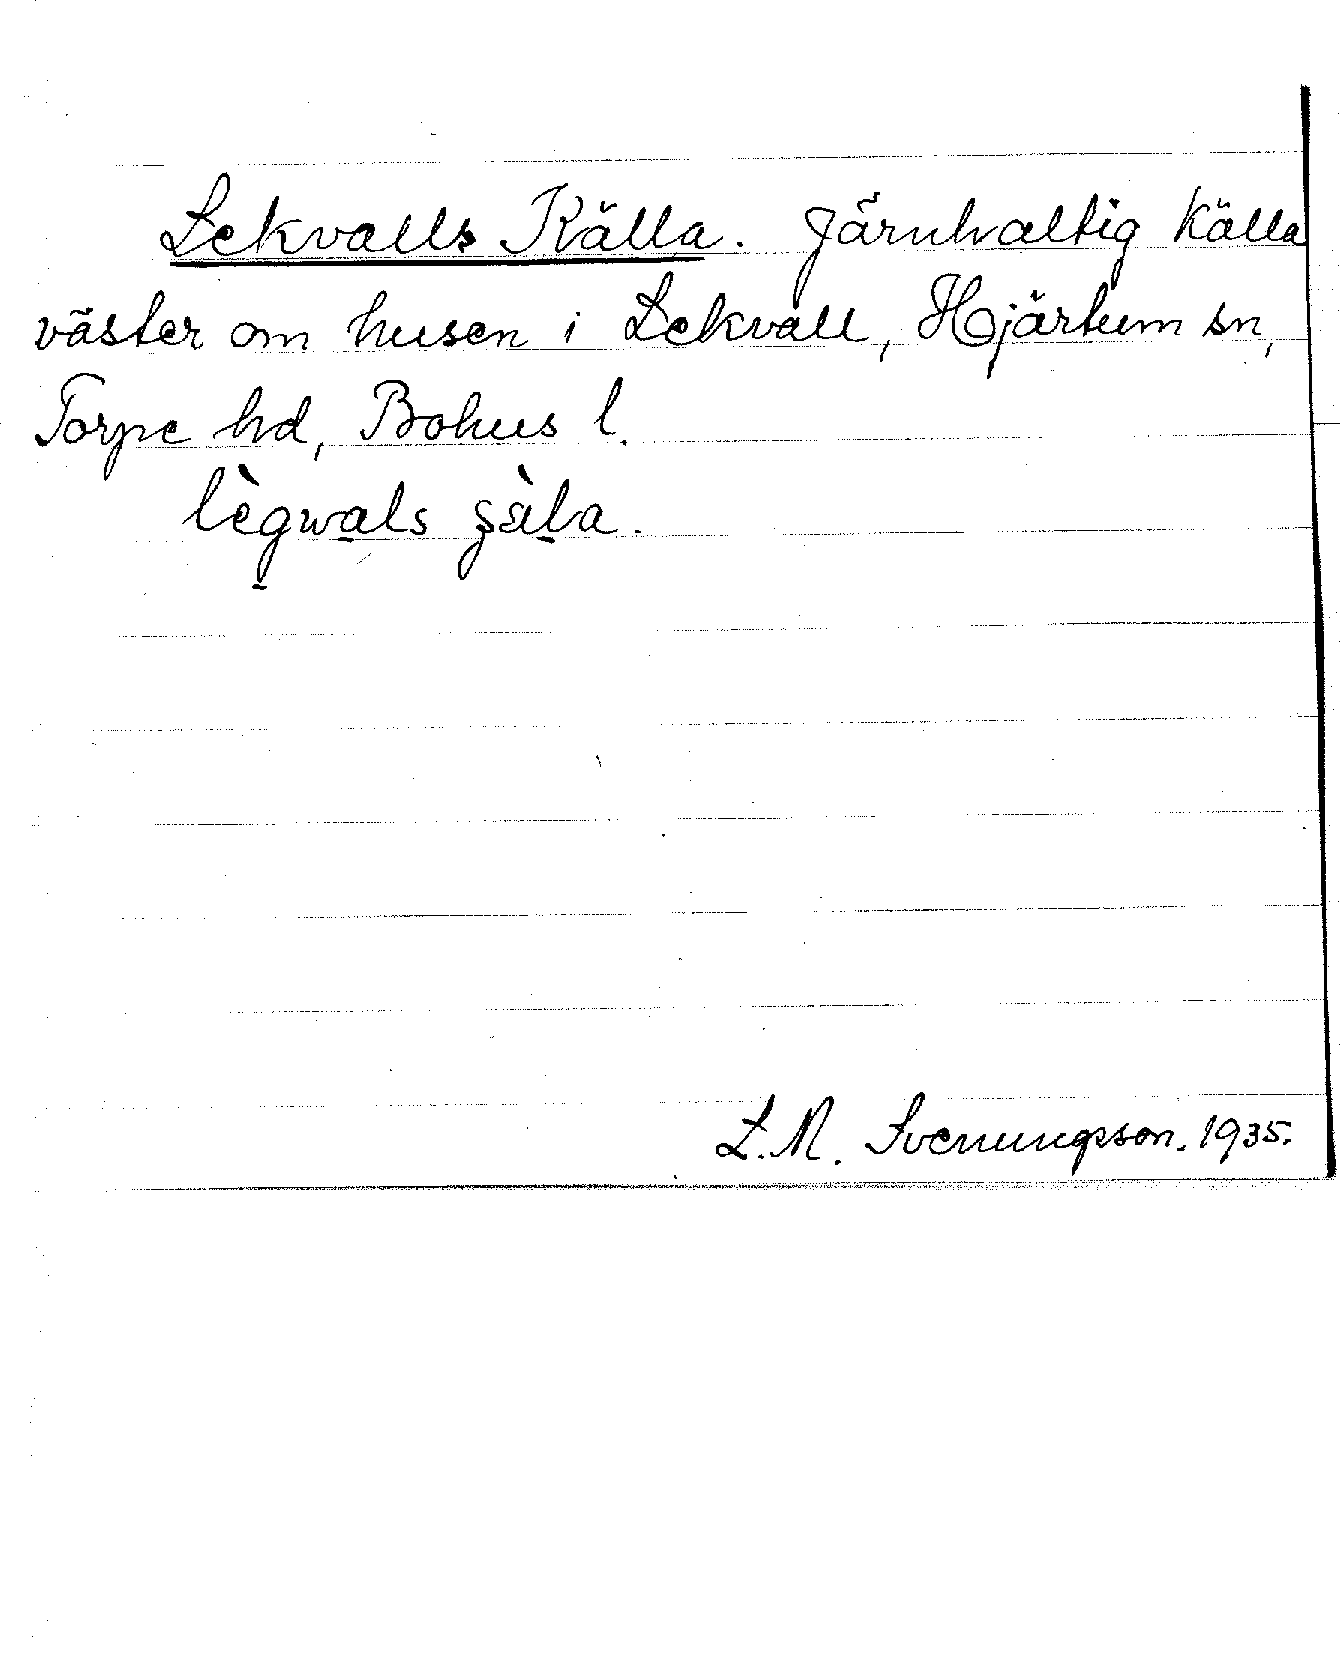 Lekvalls Källa. Järnhaltig källa
väster om husen i Lekvall, Hjärtum sn,
Torpe hd, Bohus l.
lègwals
L. M. Svenungsson. 1935.